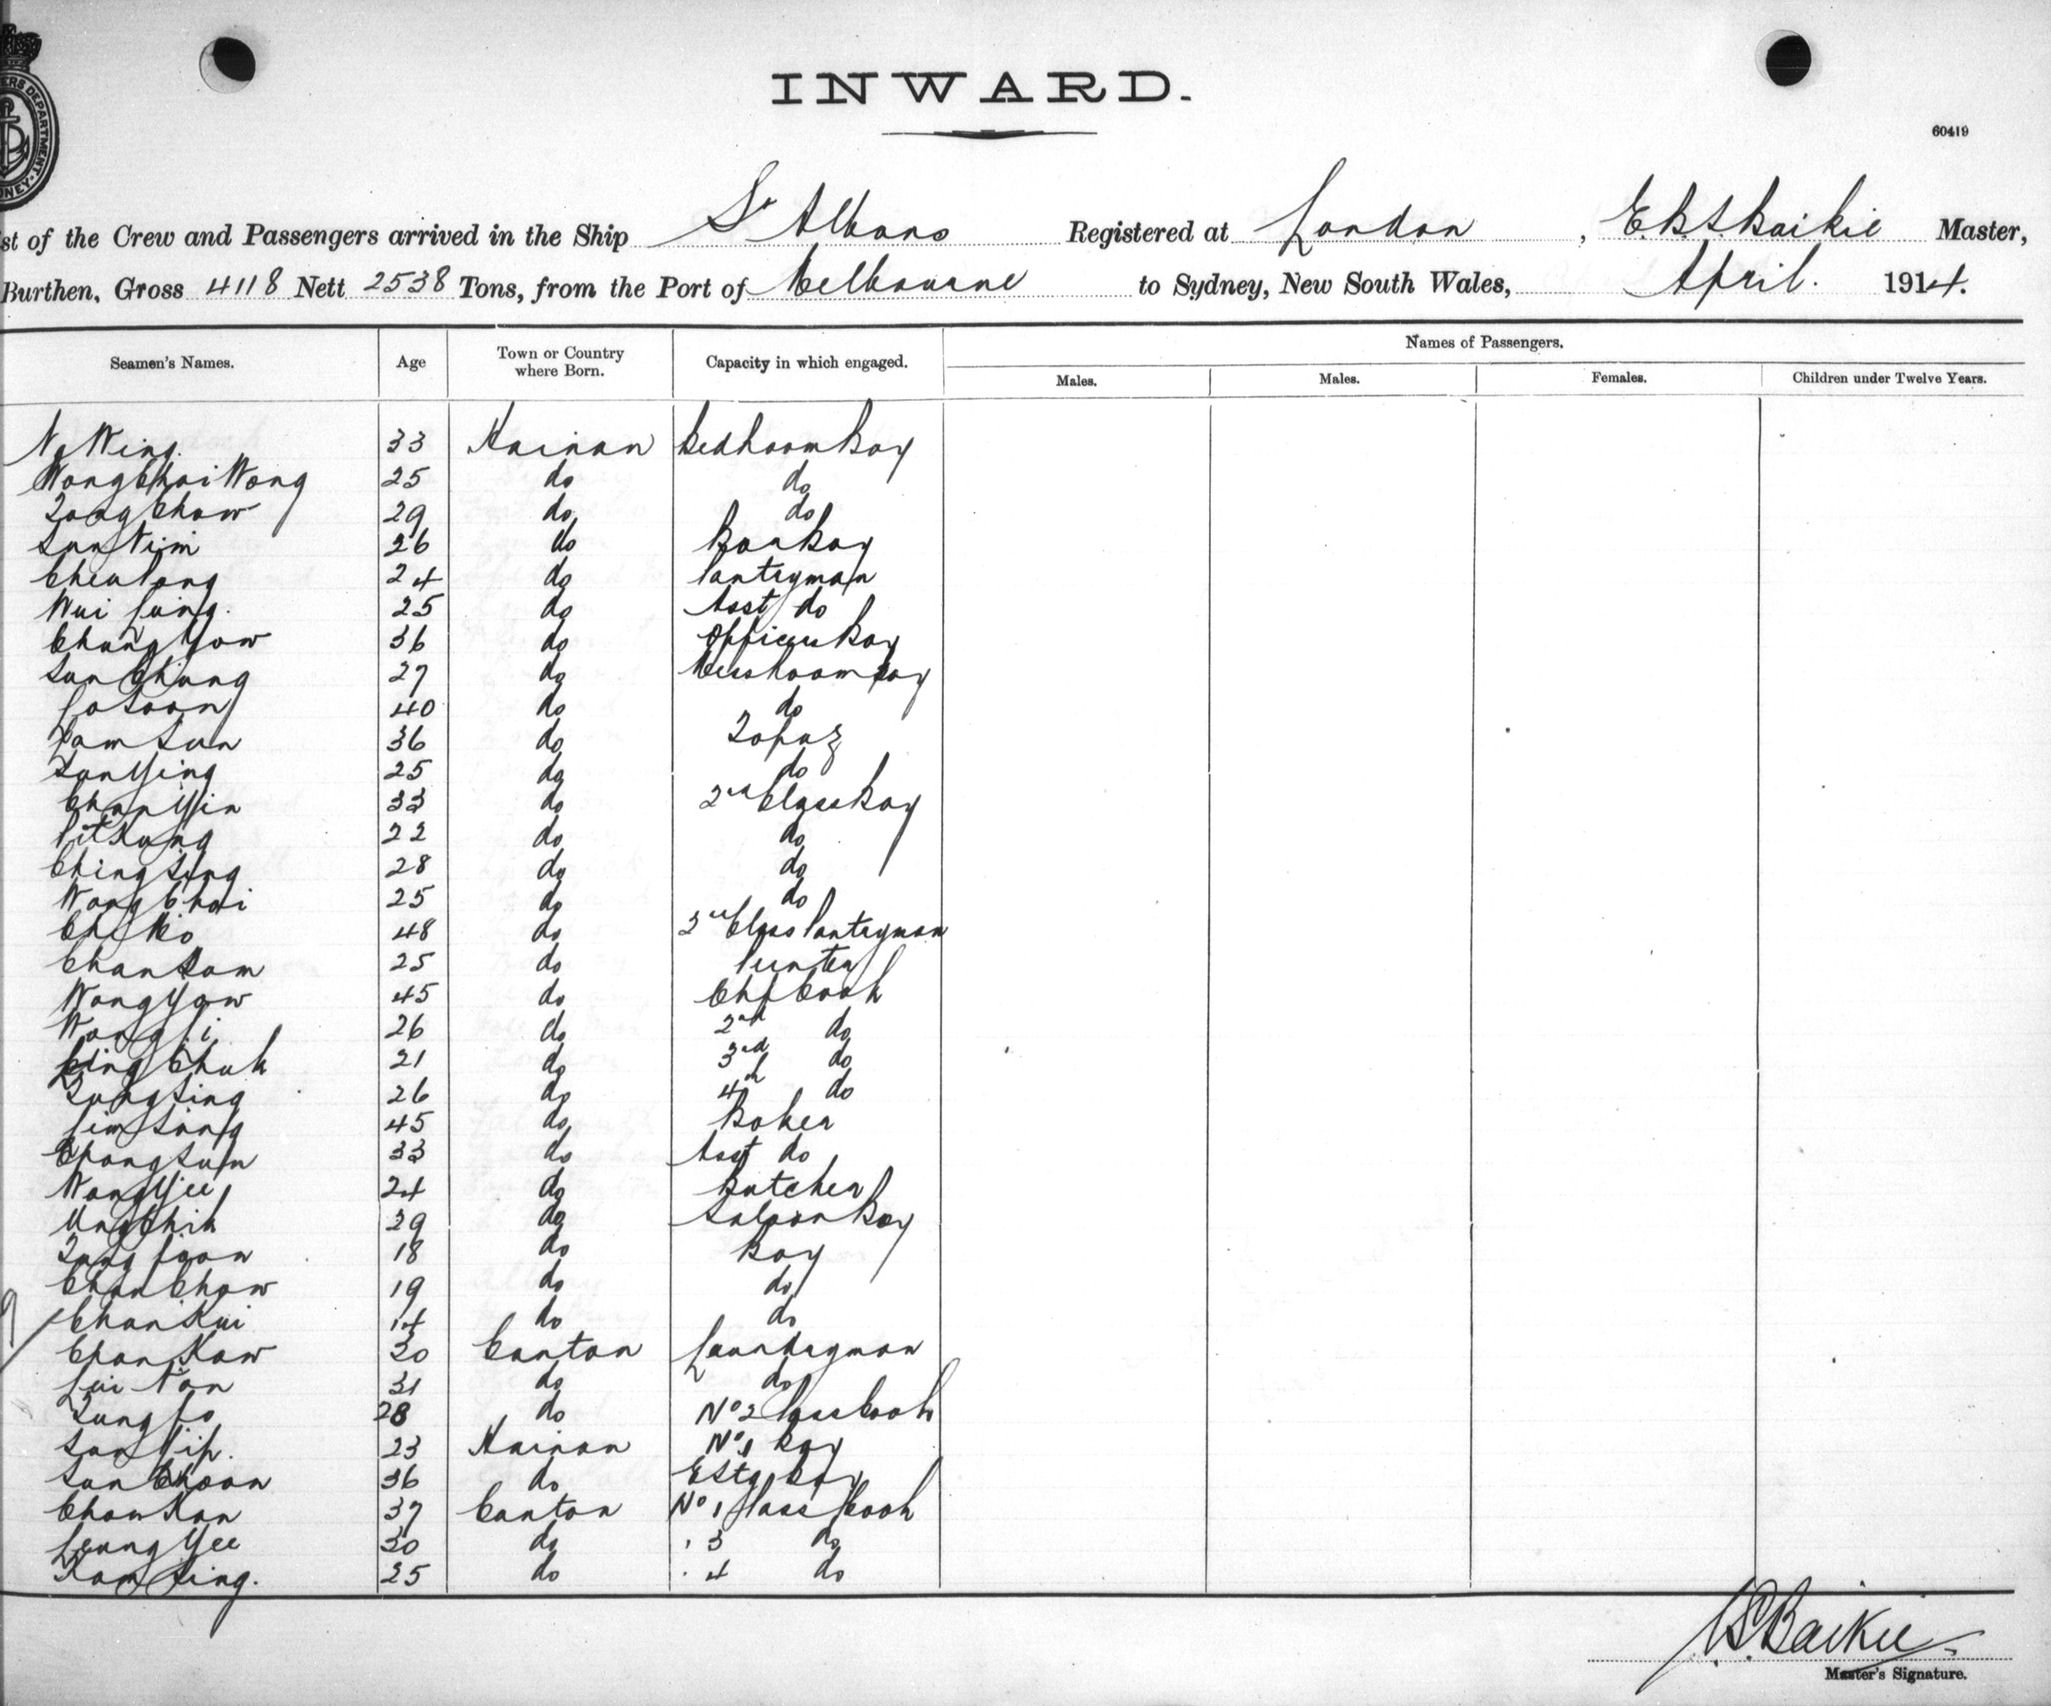 INWARD.
60419
st of the Crew and Passengers arrived in the Ship St Albans Registered at London, Master,
Burthen, Gross 4118 Nett 2538 Tons, from the Port of Melbourne to Sydney, New South Wales, April. 1914.
Names of Passengers.
Seamen's Names. Age Town or Country where Born. Capacity in which engaged. Males. Males. Females. Children under Twelve Years.
Ng Wing. 33 Hainan Bedroom Boy
Wong Choi Wong 25 do do
Tong Chow 29 do do
Sun Nim 26 do Bar Boy
24 do Pantryman
Wui Lung. 25 do Asst do
Chung Yow 36 do Officers Boy
Sun Chung 27 do Messroom Boy
Lo Soon 40 do do
Lam Sun 36 do Topaz
Sun Ying 25 do do
Chan Yin 33 do 2nd Class Boy
22 do do
Ching Sing 28 do do
Wong Choi 25 do do
48 do 2nd Class Pantryman
Chan Sam 25 do Printer
Wong Yow 45 do Chf Cook
Wong Li 26 do 2nd do
Chuk 21 do 3rd do
Tung Sing 26 do 4th do
Lim Sang 45 do Baker
Chong Sun 33 do Asst do
Wong Yee 24 do Butcher
Ung Chik 29 do Saloon Boy
Tung Foon 18 do Boy
Chan Chow 19 do do
Chan Kui 14 do do
Chan Kow 30 Canton Laundryman
Lui Non 31 do do
Tung Lo 28 do No 2 Pass Cook
Sun Yip. 23 Hainan No 1 Boy
Sun Choon 36 do Boy
Chow Kan 37 Canton No 1 Pass Cook
Leung Yee 30 do " 3 do
Kam Sing. 25 do " 4 do
Baikie
Master's Signature.